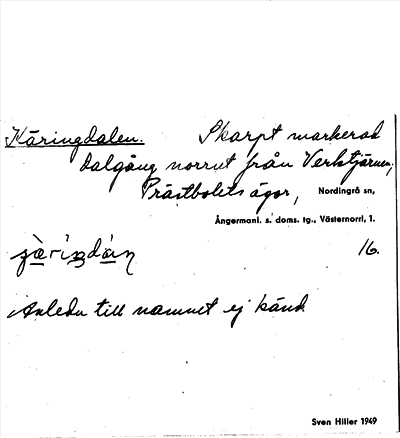 Käringdalen. Skarpt markerad
dalgång norrut från Verktjärnen,
Prästbolets ägor, Nordingrå sn,
Ångermanl. s. doms. tg., Västernorrl, 1.
16.
Anledn till namnet ej känd.
Sven Hiller 1949